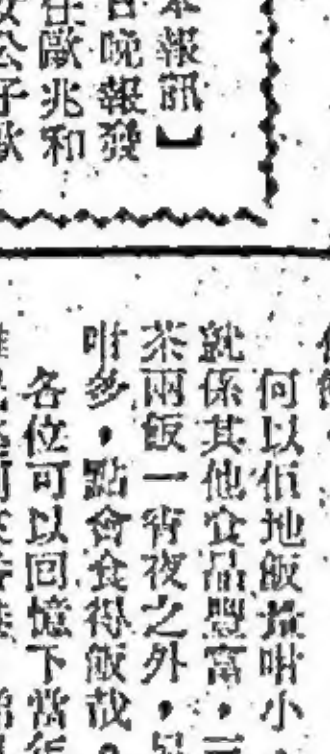 本報訊】
日晚報發
任歐兆和
女公子歐
何以佢地飯量咁小，
就係其他食品豐富，一
茶兩飯一宵夜之外，
咁多，點會食得飯哉。
各位可以回憶下當年